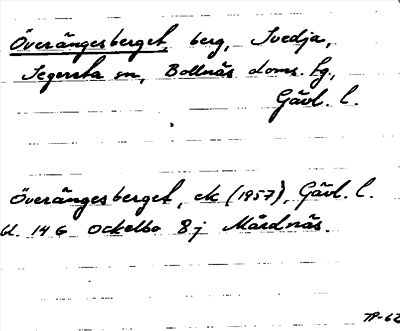 Överängesberget, berg, Svedja,
Segersta sn, Bollnäs doms. fg.,
Gävl. l.
Överängesberget, ek (1957), Gävl. l.
bl. 14 G Ockelbo 8 j Mårdnäs.
TP-62